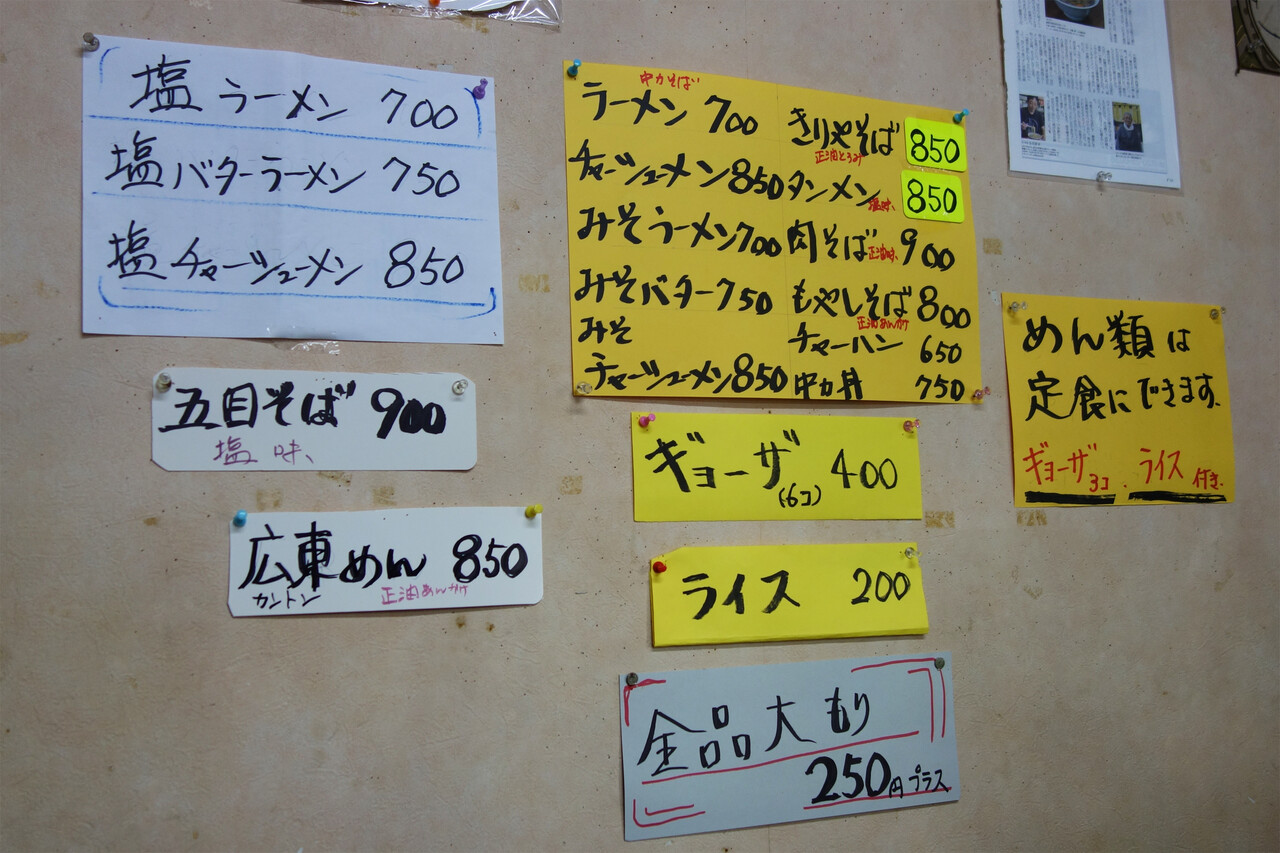 塩ラーメン 700
塩バターラーメン 750
塩チャーシューメン 850
五目そば 900
塩味
広東めん 850
カントン
正油あんかけ
中力そば
ラーメン 700
チャーシューメン 850
みそラーメン 700
みそバター 750
みそ
チャーシューメン 850
きりやそば 850
正油とろみ
タンメン 850
塩味
肉そば 900
正油味
もやしそば 800
正油あんかけ
チャーハン 650
中力丼 750
ギョーザ 400
(6コ)
ライス 200
全品大もり
250円プラス
めん類は
定食にできます。
ギョーザ3コ、ライス付き